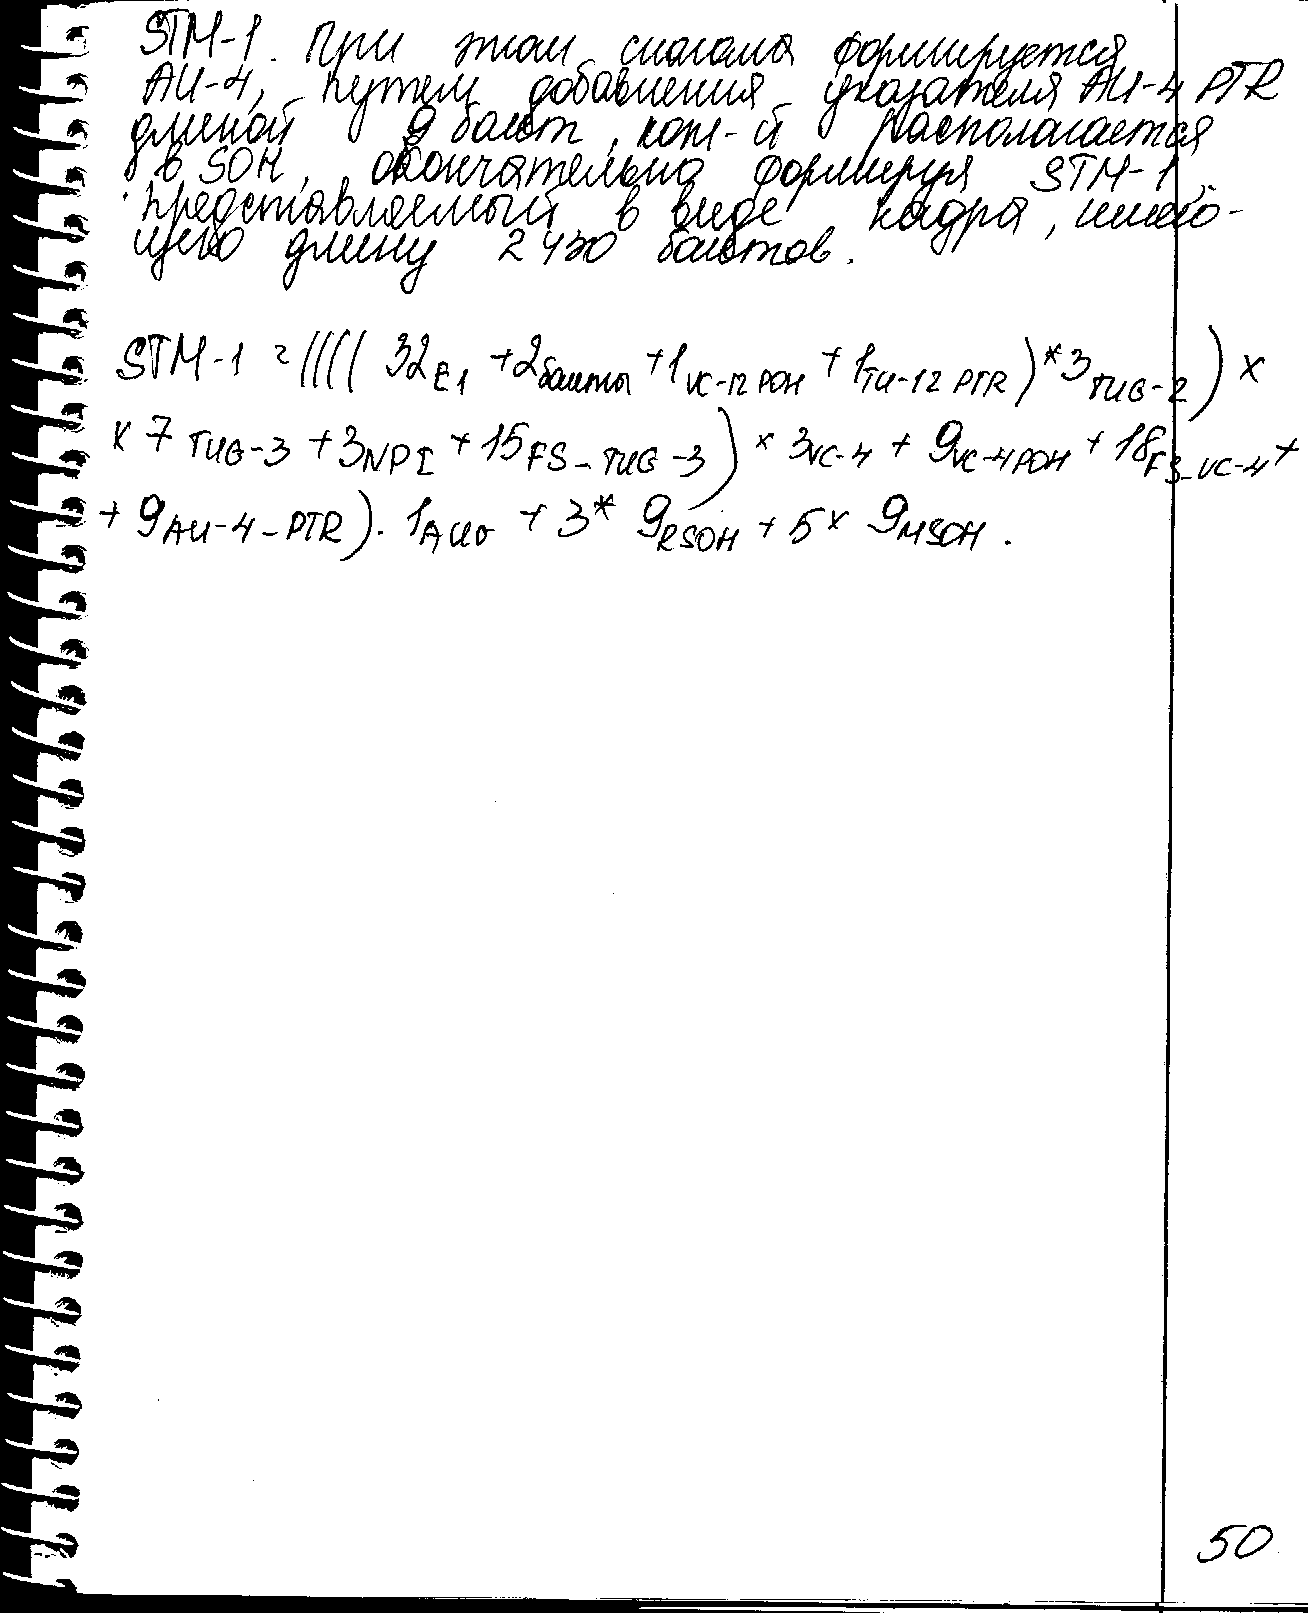 STM-1. При этом сначала формируется
AU-4, путем добавления указателя AU-4 PTR
длиной 9 байт, кот-й располагается
в SOH, окончательно формируя STM-1,
представляемый в виде кадра, имею-
щего длину 2430 байтов.
STM-1 = ((((32 E1 + 2 байты + 1 VC-12 POH + 1 TU-12 PTR) * 3 TUG-2) x
x 7 TUG-3 + 3 NPI + 15 FS-TUG-3) x 3 VC-4 + 9 VC-4 POH + 18 FS-VC-4 +
+ 9 AU-4-PTR) · 1 AUG + 3 * 9 RSOH + 5 x 9 MSOH.
50